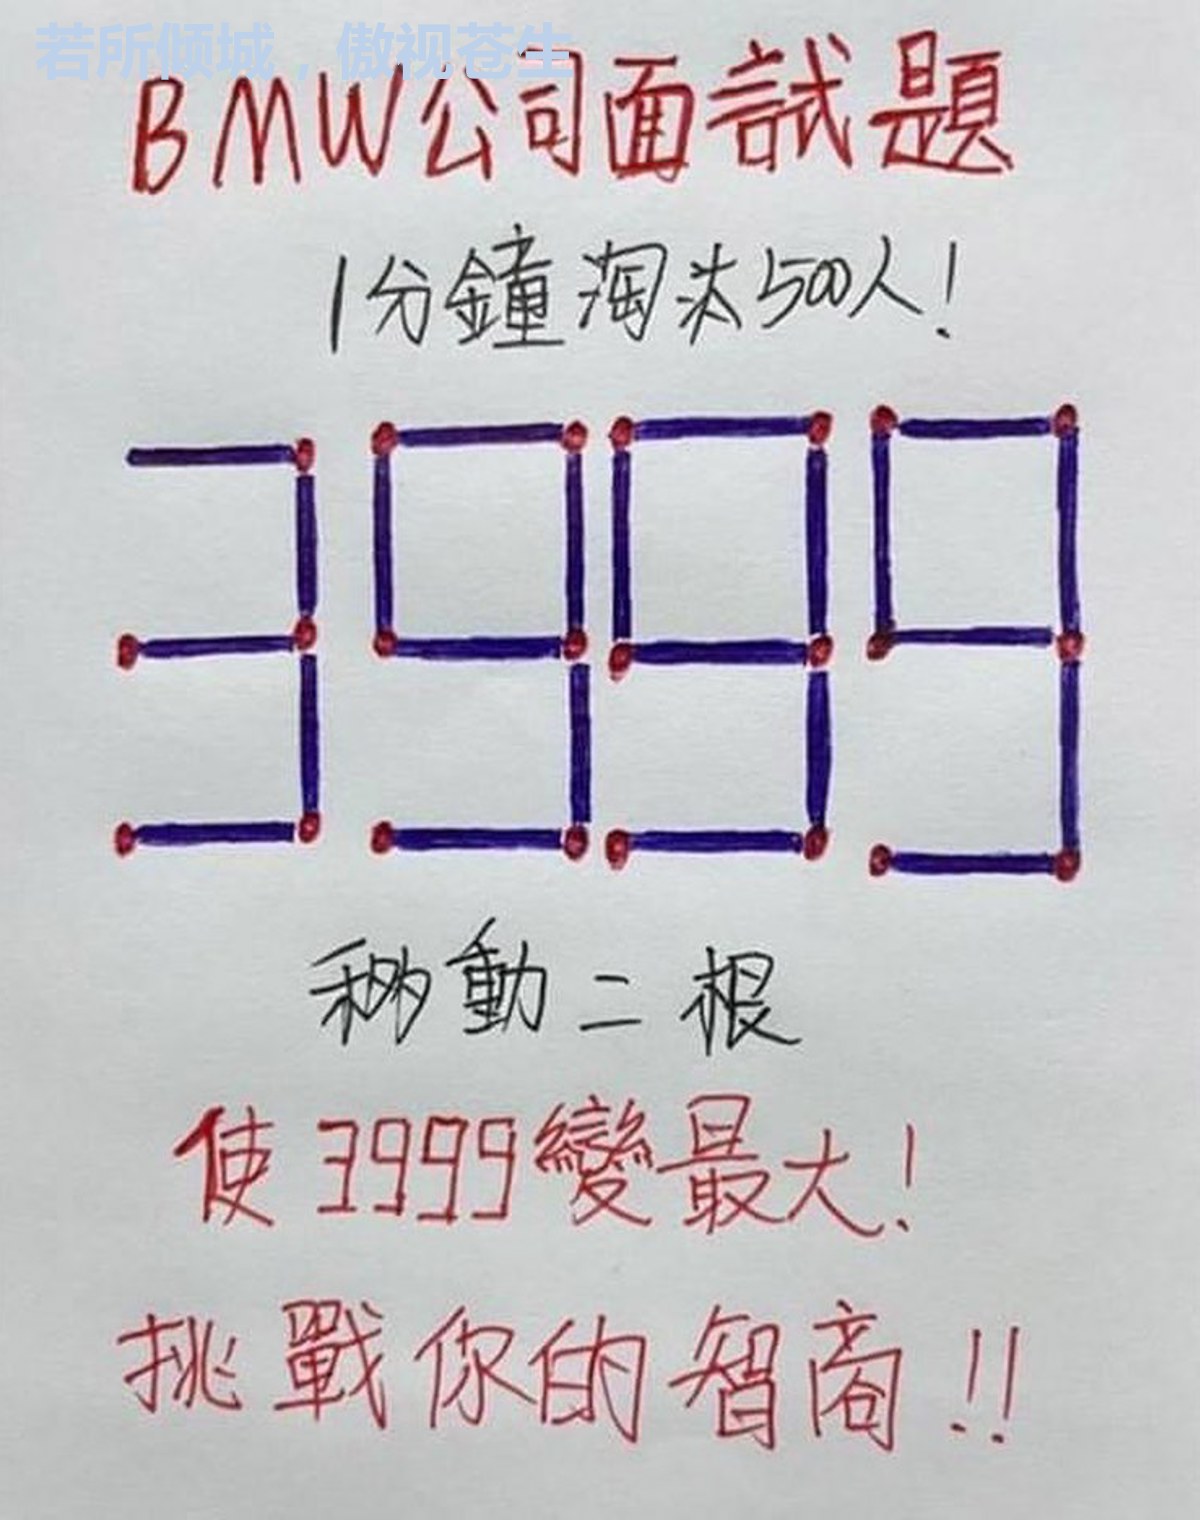 若所倾城，傲视苍生
BMW公司面試題
1分鐘淘汰500人!
3999
移動二根
使3999變最大!
挑戰你的智商!!